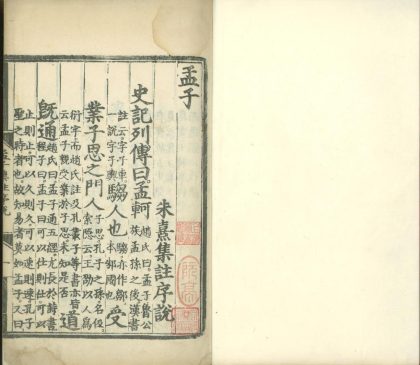 孟子
朱熹集註序說
史記列傳曰孟軻趙氏曰孟子魯公族孟孫之後漢書
註云字子車一說字子輿騶人也騶亦作鄒本邾國也受
業子思之門人子思孔子之孫名伋索隱云王劭以人爲
衍字而趙氏註及孔叢子等書亦皆云孟子親受業於子思未知是否道
旣通趙氏曰孟子通五經尤長於詩書程子曰孟子曰可以仕則仕可以
止則止可以久則久可以速則速孔子聖之時者也故知易者莫如孟子又曰